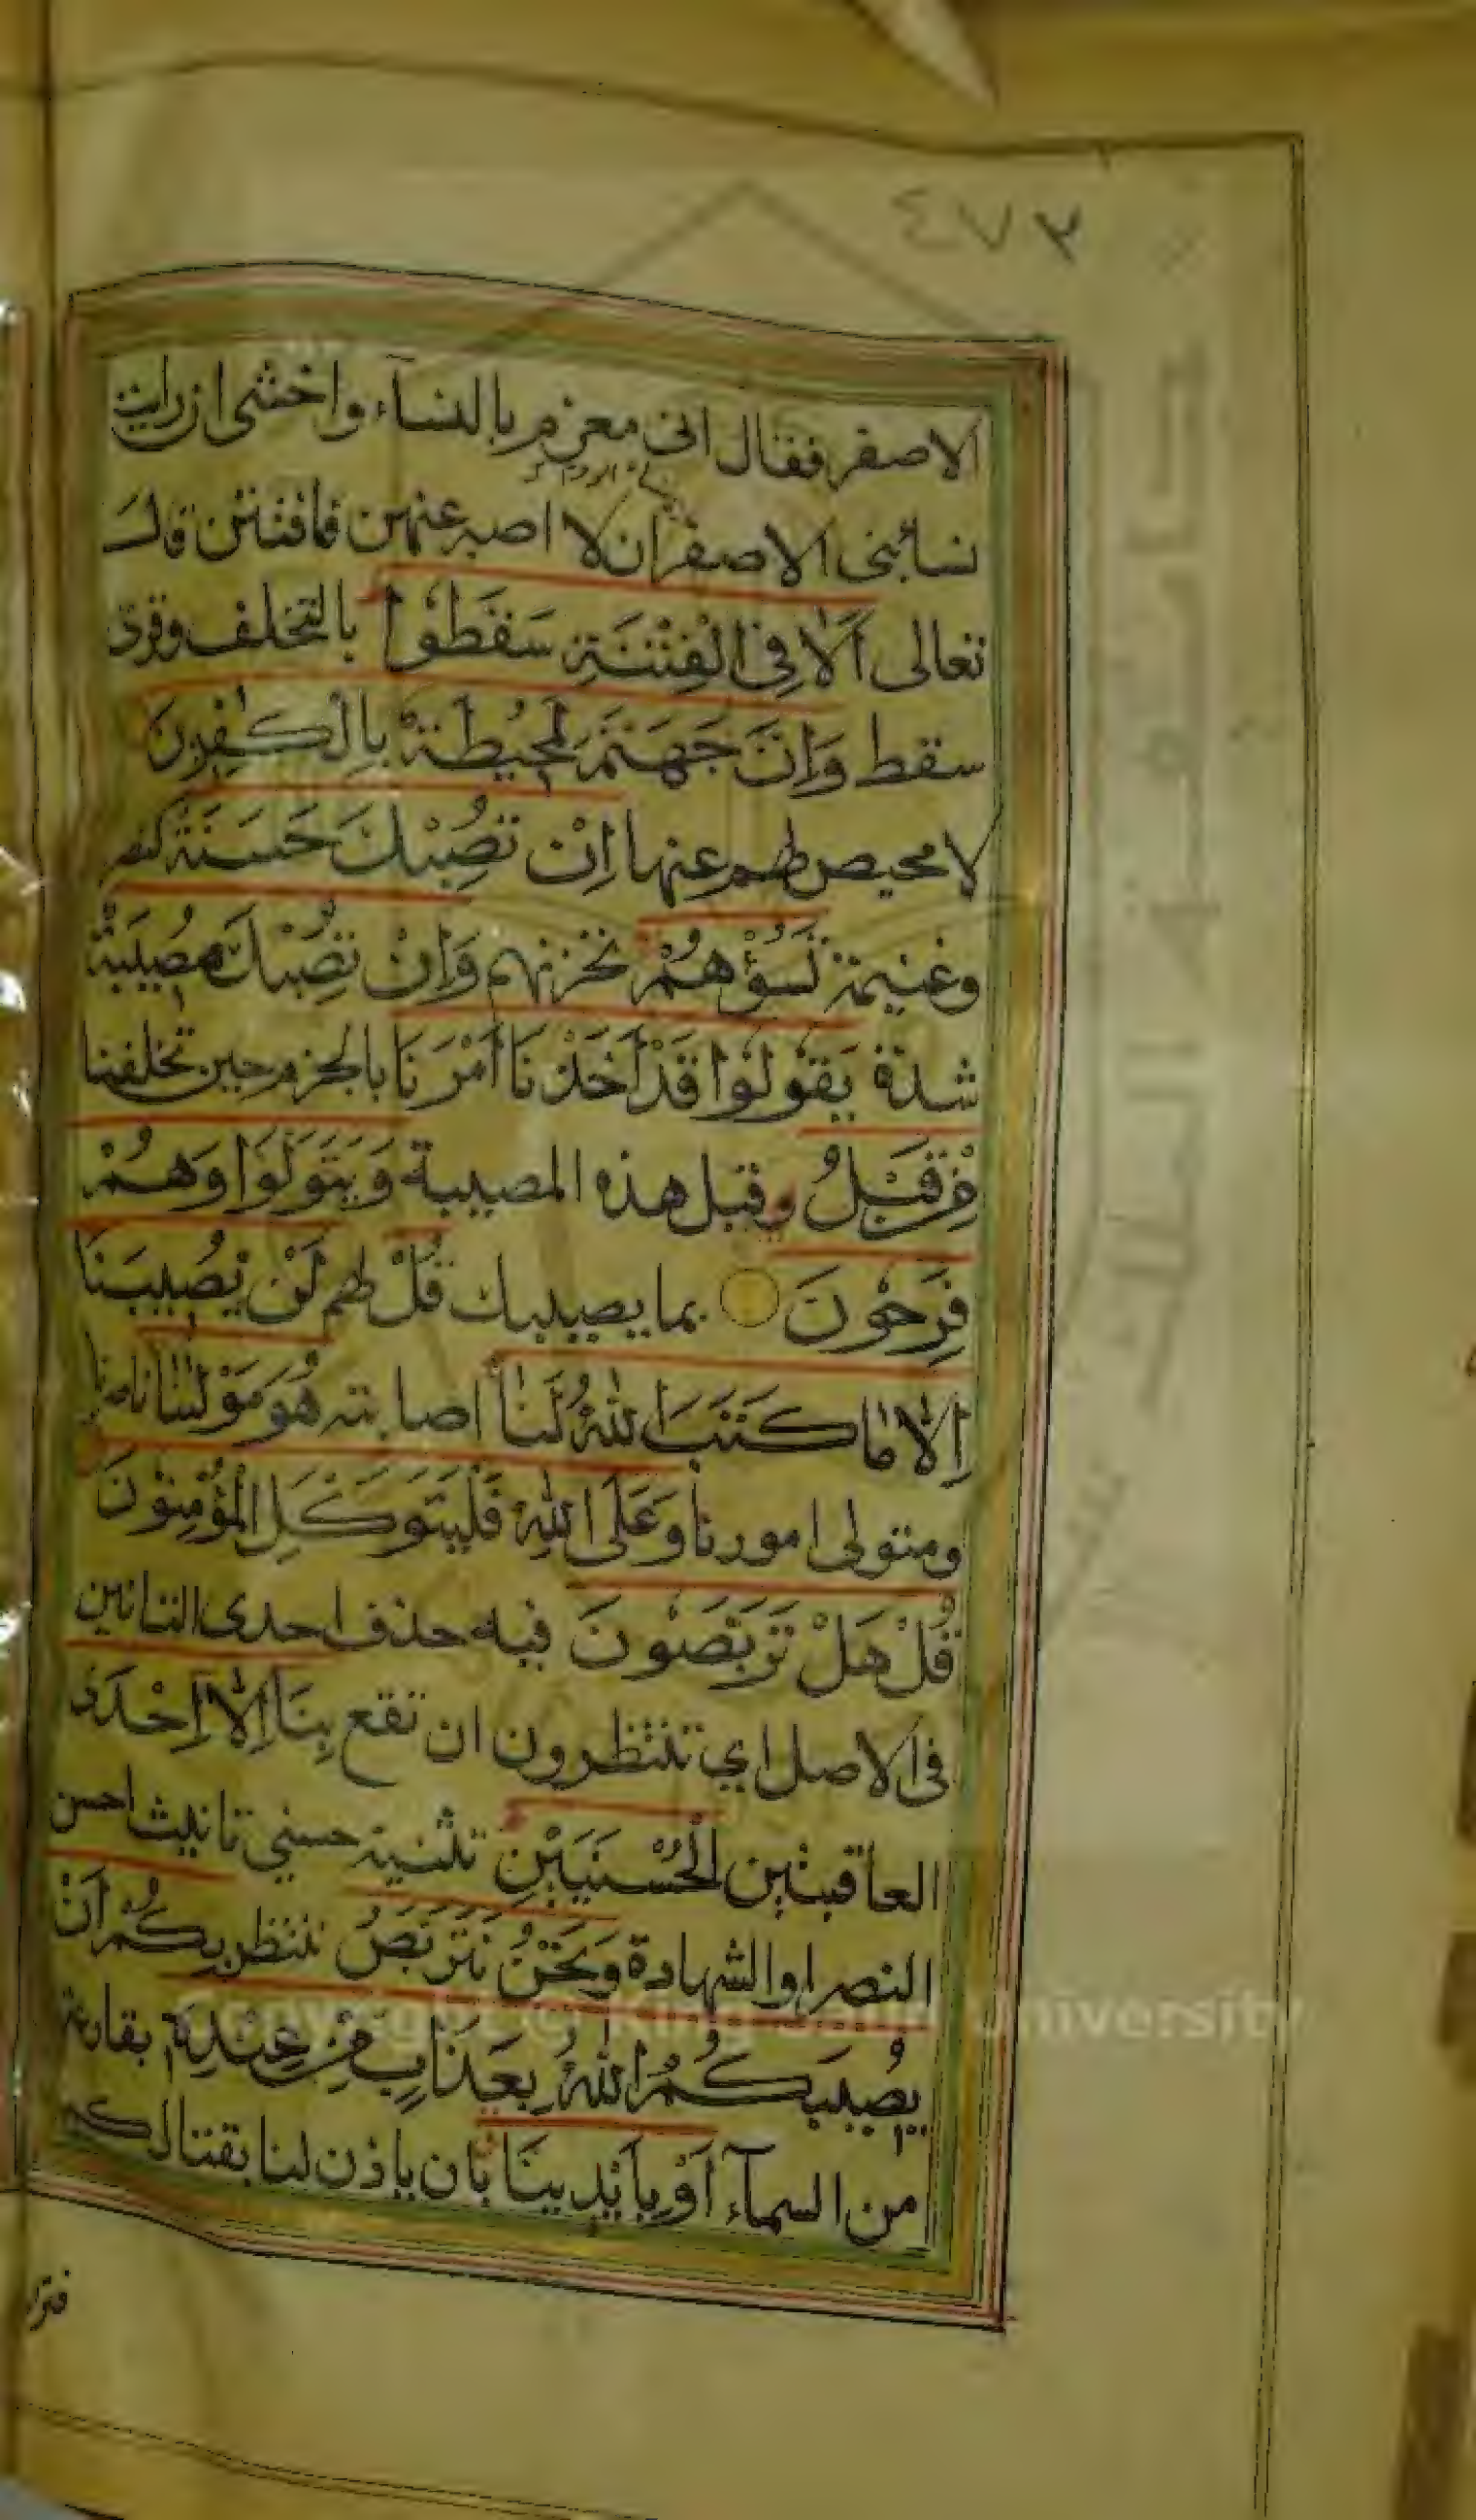 ٤٧٢
الاصفر فقال انى مغرم بالنسآء واخشى ان رايت
نسآء بنى الاصفر ان لا اصبر عنهن فافتتن قال
تعالى اَلَا فِى الْفِتْنَةِ سَقَطُوْا بالتخلف وقرئ
سقط وَاِنَّ جَهَنَّمَ لَمُحِيْطَةٌ بِالْكٰفِرِيْنَ
لا محيص لهم عنها اِنْ تُصِبْكَ حَسَنَةٌ كنصر
وغنيمة تَسُؤْهُمْ تحزنهم وَاِنْ تُصِبْكَ مُصِيْبَةٌ
شدة يَقُوْلُوْا قَدْ اَخَذْنَا اَمْرَنَا بالحزم حين تخلفنا
مِنْ قَبْلُ وقبل هذه المصيبة وَيَتَوَلَّوْا وَهُمْ
فَرِحُوْنَ بما يصيبك قُلْ لهم لَنْ يُصِيْبَنَا
اِلَّا مَا كَتَبَ اللّٰهُ لَنَا اصابته هُوَ مَوْلٰنَا ناصرنا
ومتولى امورنا وَعَلَى اللّٰهِ فَلْيَتَوَكَّلِ الْمُؤْمِنُوْنَ
قُلْ هَلْ تَرَبَّصُوْنَ فيه حذف احدى التائين
فى الاصل اي تنتظرون ان تقع بِنَا اِلَّا اِحْدَى
العاقبتين الْحُسْنَيَيْنِ تثنية حسنى تانيث احسن
النصر او الشهادة وَنَحْنُ نَتَرَبَّصُ ننتظر بِكُمْ اَنْ
يُصِيْبَكُمُ اللّٰهُ بِعَذَابٍ مِنْ عِنْدِهٖ بقارعة
من السمآء اَوْ بِاَيْدِيْنَا بان ياذن لنا بقتالكم